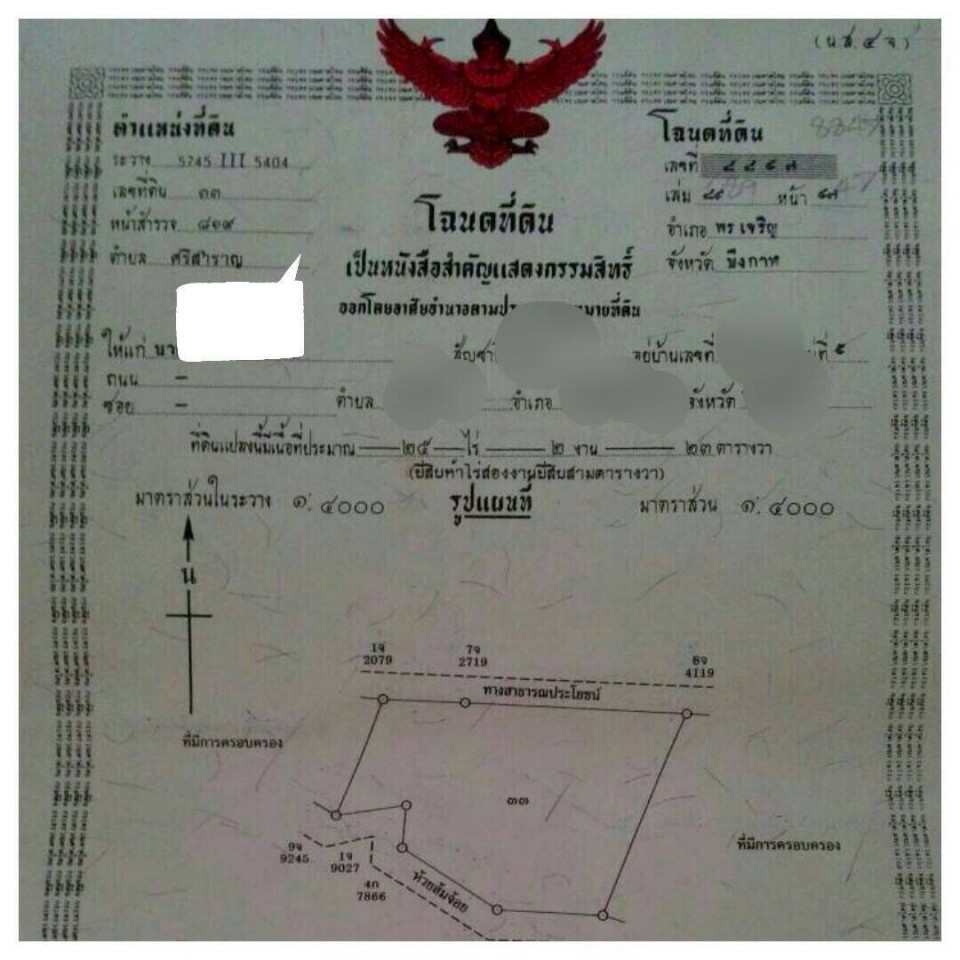 (น.ส.๔ จ)
ตำแหน่งที่ดิน
ระวาง 5745 III 5404
เลขที่ดิน ๓๓
หน้าสำรวจ ๘๑๙
ตำบล ศรีสำราญ
โฉนดที่ดิน
เลขที่
เล่ม หน้า
อำเภอ พรเจริญ
จังหวัด บึงกาฬ
โฉนดที่ดิน
เป็นหนังสือสำคัญแสดงกรรมสิทธิ์
ออกโดยอาศัยอำนาจตามประ มายที่ดิน
ให้แก่ นา สัญชา อยู่บ้านเลขที่ ที่ ๕
ถนน –
ซอย – ตำบล อำเภอ จังหวัด
ที่ดินแปลงนี้มีเนื้อที่ประมาณ ๒๕ ไร่ ๒ งาน ๒๓ ตารางวา
(ยี่สิบห้าไร่สองงานยี่สิบสามตารางวา)
มาตราส่วนในระวาง ๑:๔๐๐๐ รูปแผนที่ มาตราส่วน ๑:๔๐๐๐
น
1จ 7จ 8จ
2079 2719 4119
ทางสาธารณประโยชน์
ที่มีการครอบครอง
๓๓
ที่มีการครอบครอง
9จ 1จ
9245 9027
4ก
7866
ห้วยส้มจ้อย